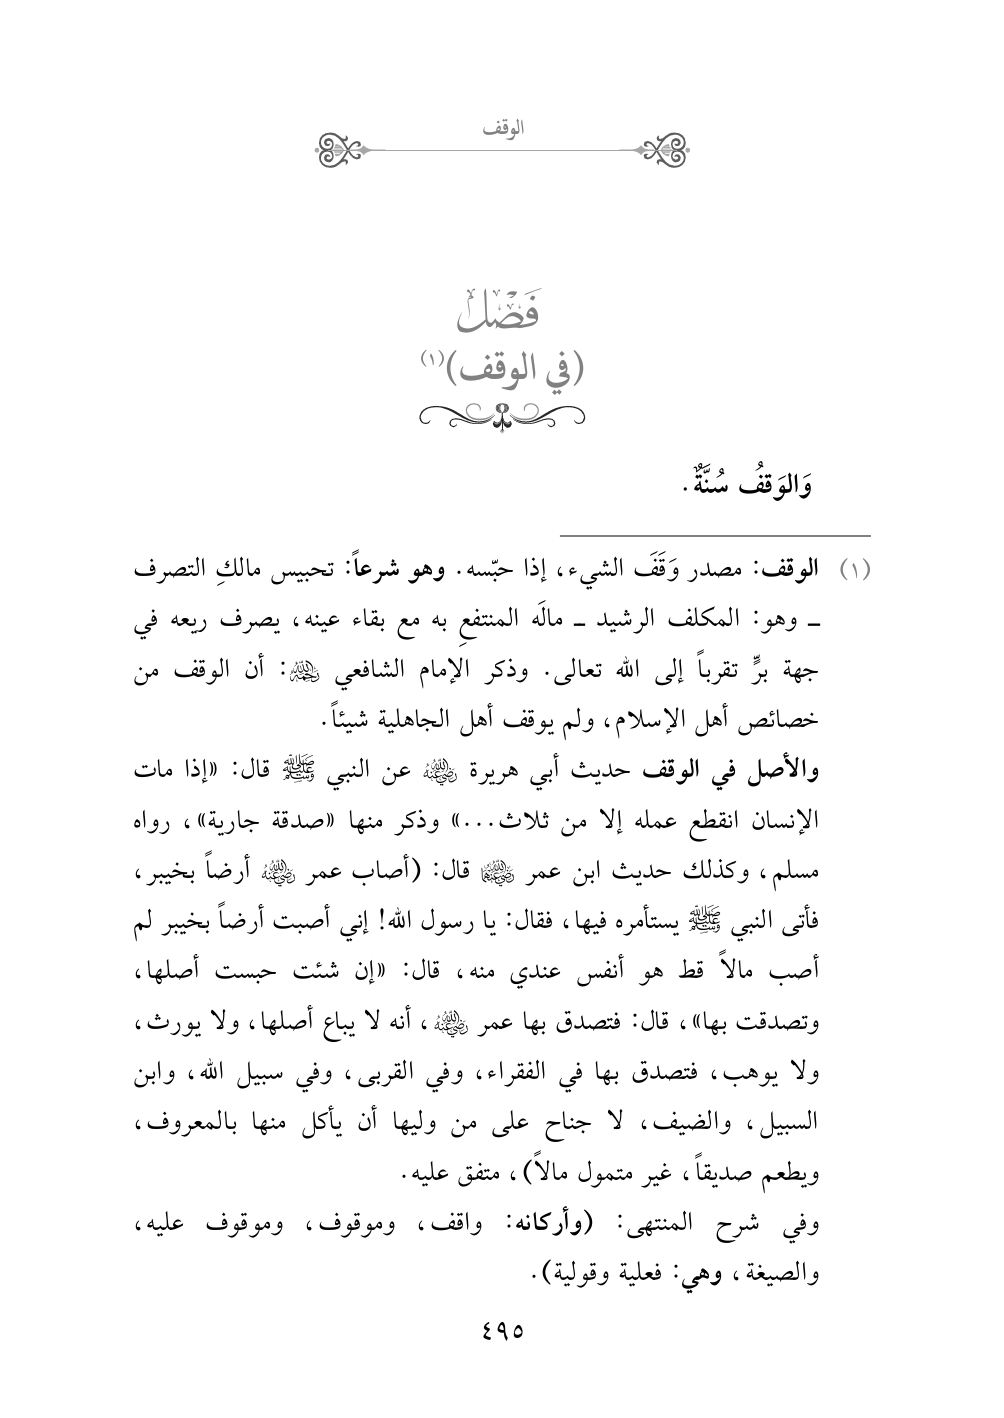 الوقف
فَصْل
(في الوقف)(١)
وَالوَقفُ سُنَّةٌ.
(١) الوقف: مصدر وَقَفَ الشيء، إذا حبّسه. وهو شرعاً: تحبيس مالكِ التصرف
ـ وهو: المكلف الرشيد ـ مالَه المنتفعِ به مع بقاء عينه، يصرف ريعه في
جهة برٍّ تقرباً إلى الله تعالى. وذكر الإمام الشافعي رحمه الله: أن الوقف من
خصائص أهل الإسلام، ولم يوقف أهل الجاهلية شيئاً.
والأصل في الوقف حديث أبي هريرة رضي الله عنه عن النبي ﷺ قال: «إذا مات
الإنسان انقطع عمله إلا من ثلاث...» وذكر منها «صدقة جارية»، رواه
مسلم، وكذلك حديث ابن عمر رضي الله عنهما قال: (أصاب عمر رضي الله عنه أرضاً بخيبر،
فأتى النبي ﷺ يستأمره فيها، فقال: يا رسول الله! إني أصبت أرضاً بخيبر لم
أصب مالاً قط هو أنفس عندي منه، قال: «إن شئت حبست أصلها،
وتصدقت بها»، قال: فتصدق بها عمر رضي الله عنه، أنه لا يباع أصلها، ولا يورث،
ولا يوهب، فتصدق بها في الفقراء، وفي القربى، وفي سبيل الله، وابن
السبيل، والضيف، لا جناح على من وليها أن يأكل منها بالمعروف،
ويطعم صديقاً، غير متمول مالاً)، متفق عليه.
وفي شرح المنتهى: (وأركانه: واقف، وموقوف، وموقوف عليه،
والصيغة، وهي: فعلية وقولية).
٤٩٥